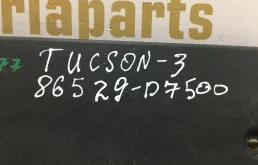 rlaparts
77 TUCSON-3
86529-D7500